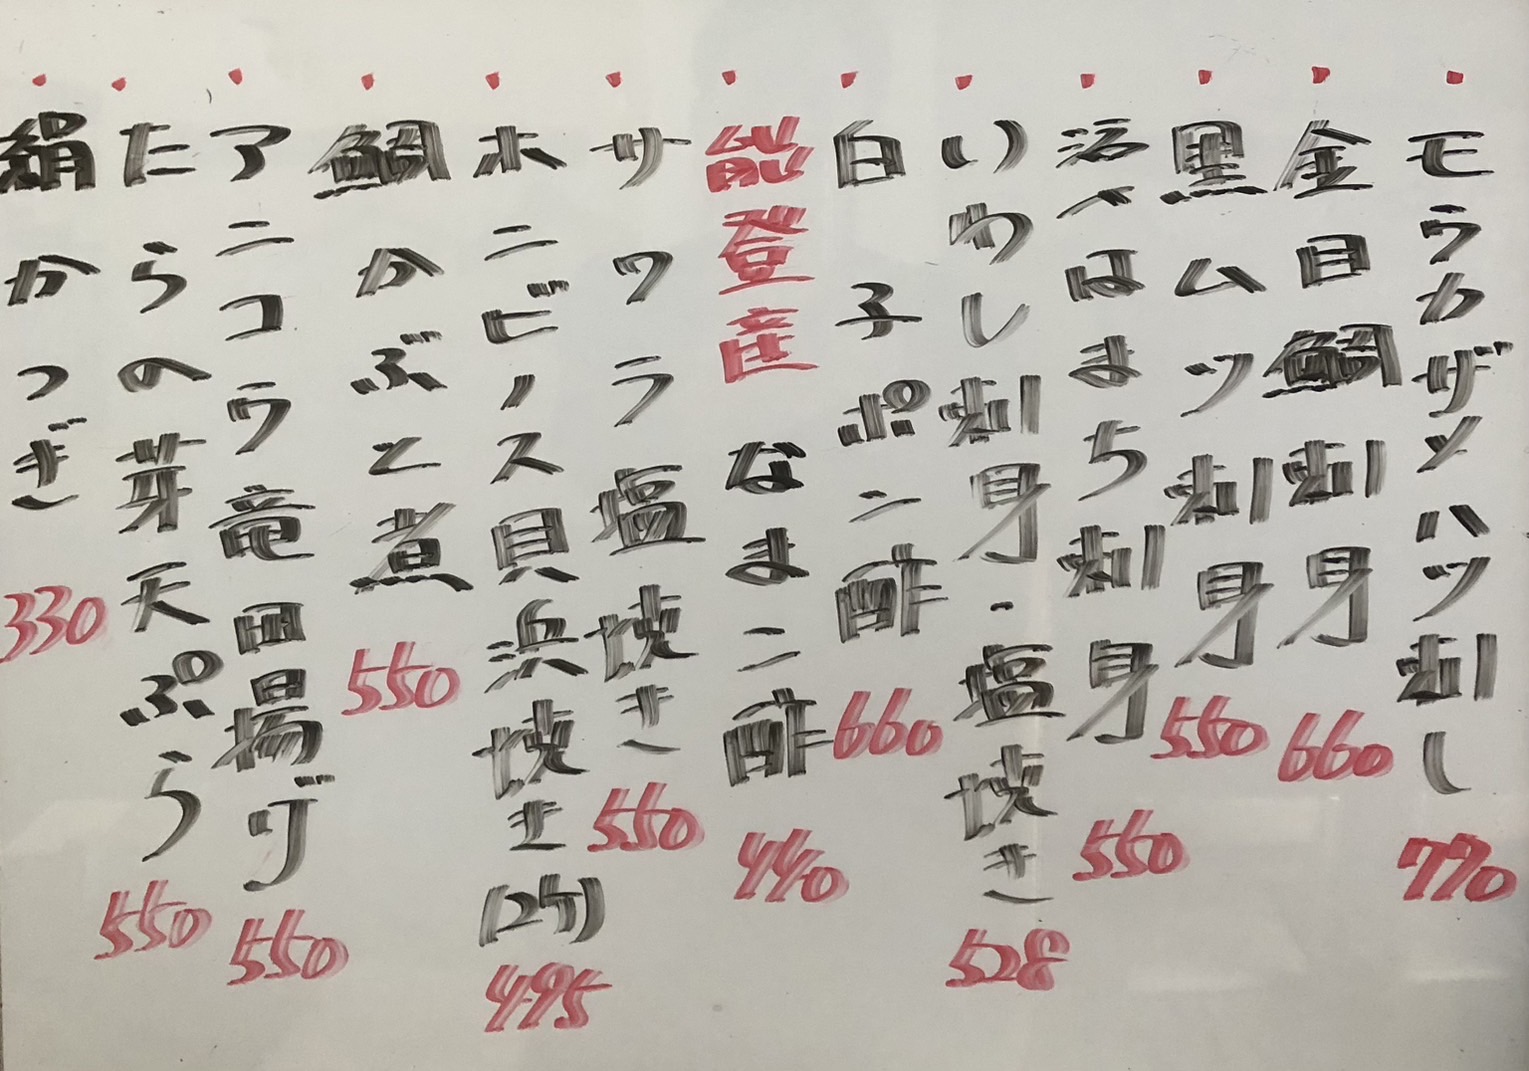 ・モウカザメハツ刺し 770
・金目鯛刺身 660
・黒ムツ刺身 550
・活〆はまち刺身 550
・いわし刺身・塩焼き 528
・白子ポン酢 660
・能登産 なまこ酢 440
・サワラ塩焼き 550
・ホンビノス貝浜焼き(2ケ) 495
・鯛かぶと煮 550
・アンコウ竜田揚げ 550
・たらの芽天ぷら 550
・絹かつぎ 330